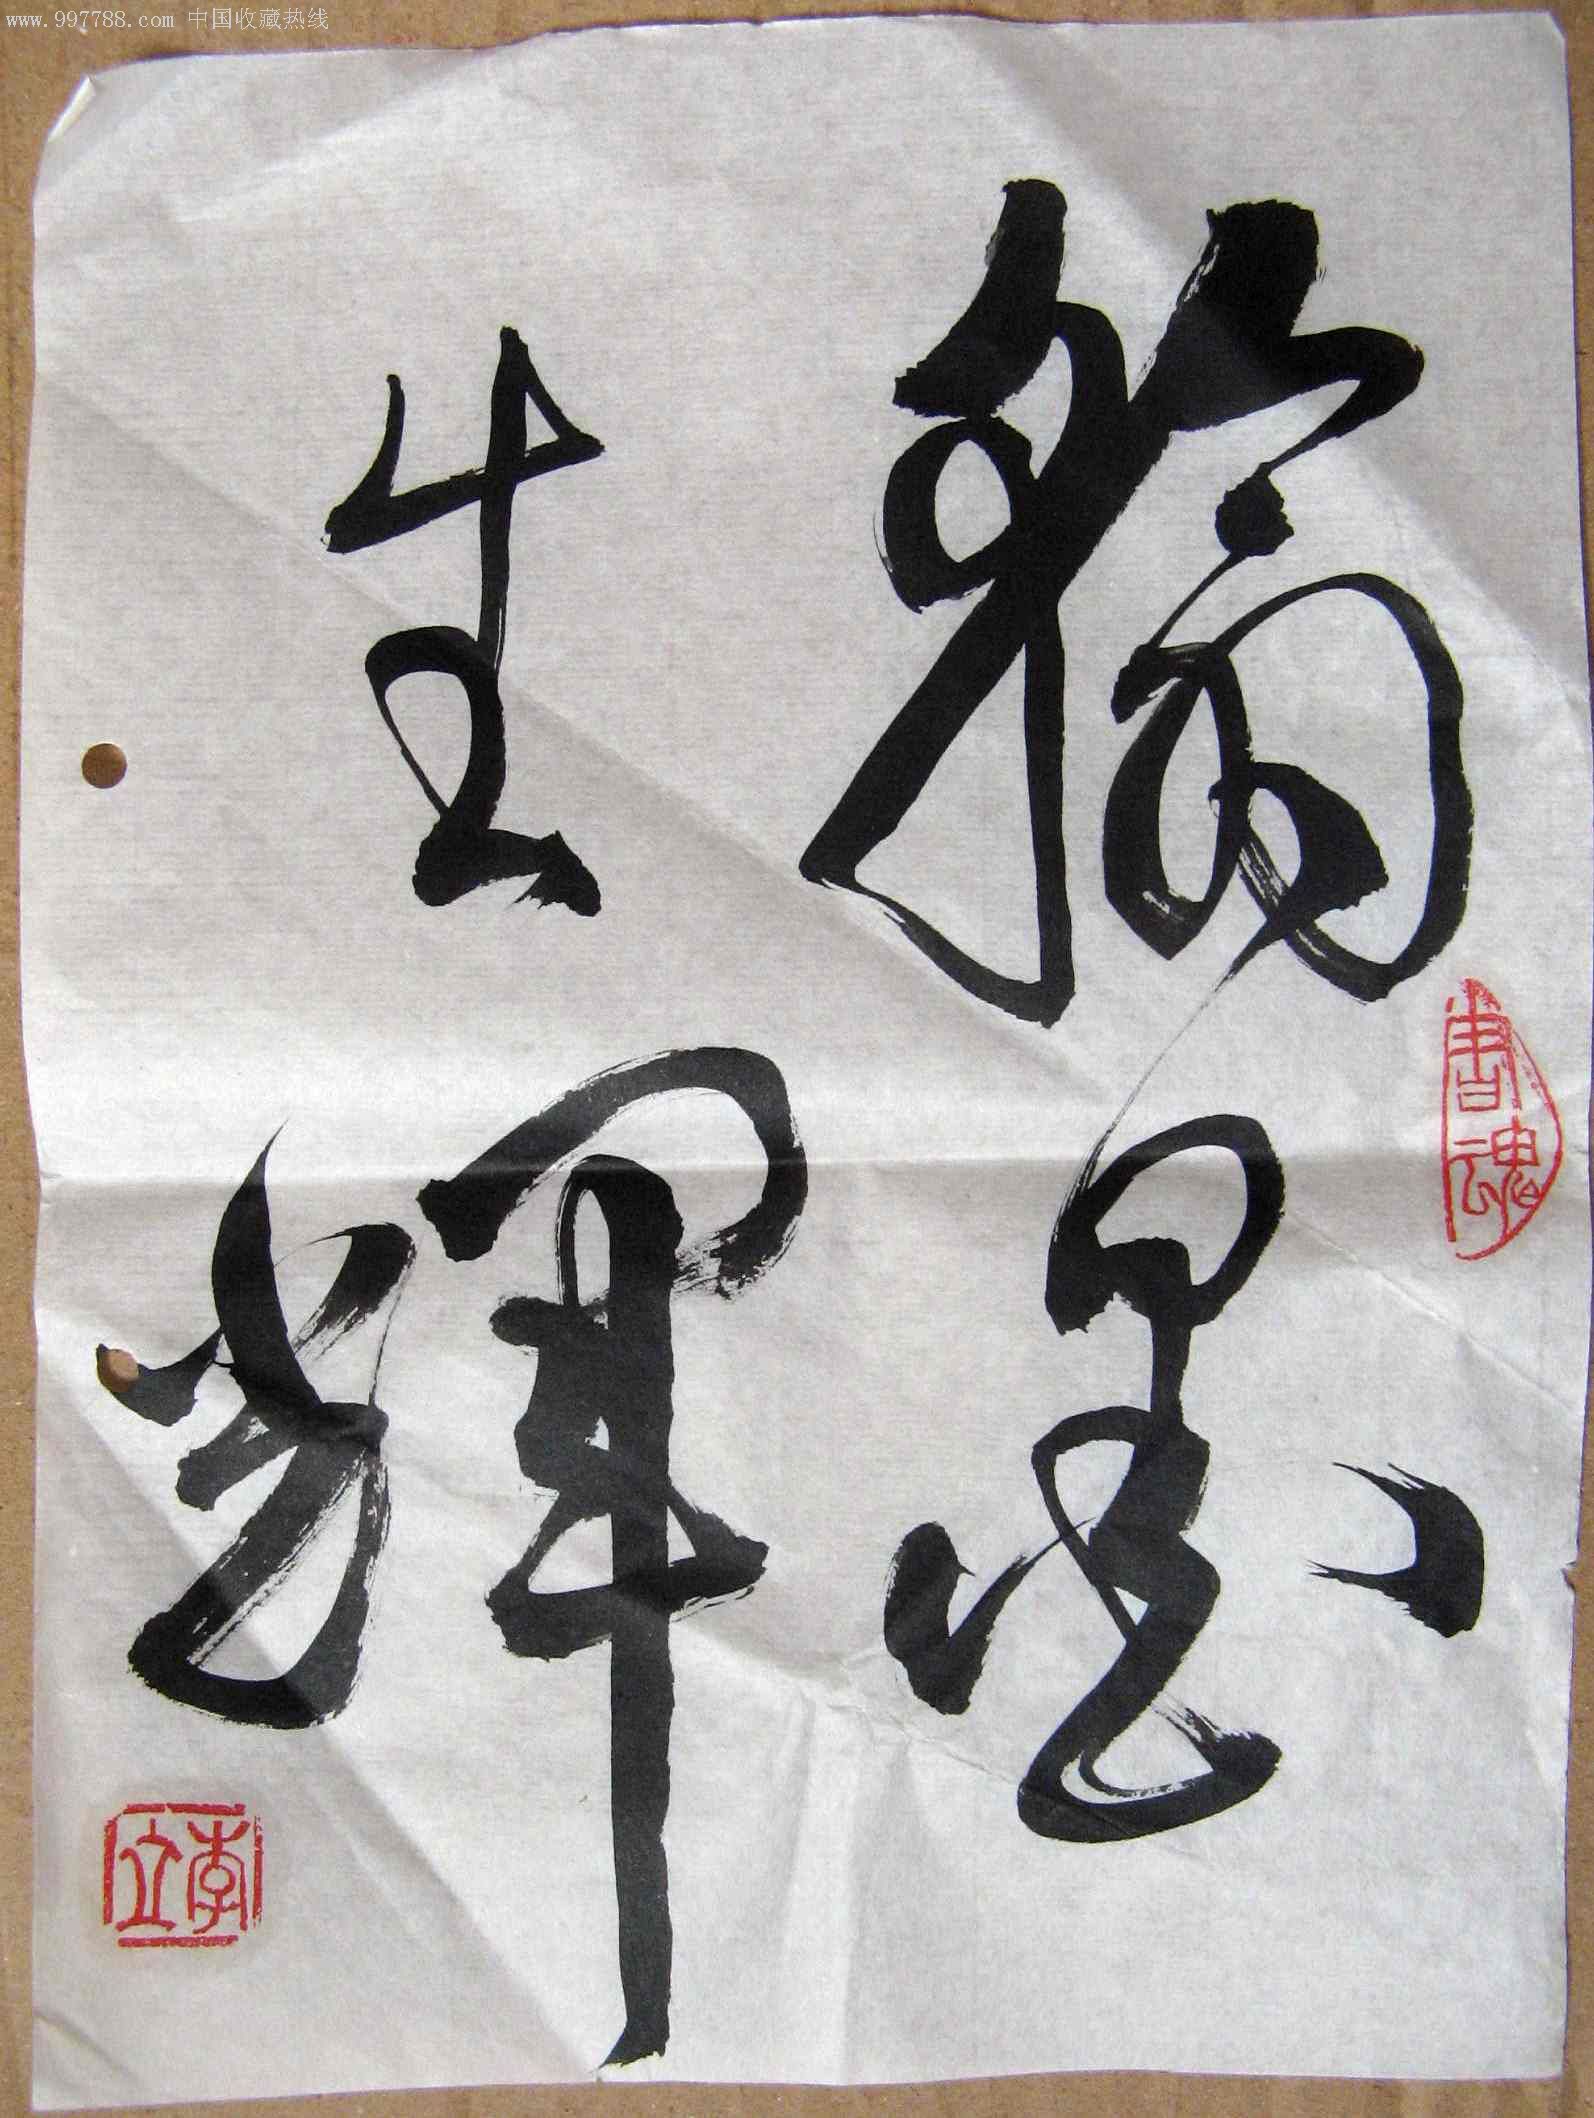 www.997788.com 中国收藏热线
翰墨
生辉
书魂
李立